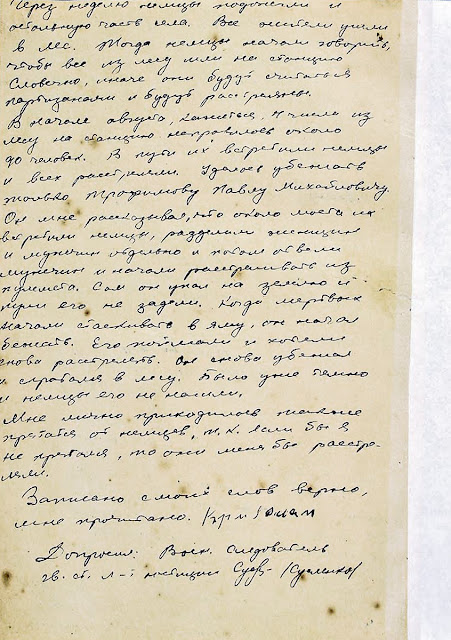 Через неделю немцы подожгли и
остальную часть села. Все жители ушли
в лес. Тогда немцы начали говорить,
чтобы все из лесу шли на станцию
Словечно, иначе они будут считаться
партизанами и будут расстреляны.
В начале августа, кажется, 4 числа из
лесу на станцию направилось около
40 человек. В пути их встретили немцы
и всех расстреляли. Удалось убежать
только Трофимову Павлу Михайловичу.
Он мне рассказывал, что около моста их
встретили немцы, разделили женщин
и мужчин отдельно и потом отвели
мужчин и начали расстреливать из
пулемета. Сам он упал на землю и
пули его не задели. Когда мертвых
начали стаскивать в яму, он начал
бежать. Его поймали и хотели
снова расстрелять. Он снова убежал
и спрятался в лесу. Было уже темно
и немцы его не нашли.
Мне лично приходилось также
прятатся от немцев, т.к. если бы я
не прятался, то они меня бы расстре-
ляли.
Записано с моих слов верно,
мне прочитано.
Допросил: Воен. следователь
гв. ст. л-т юстиции